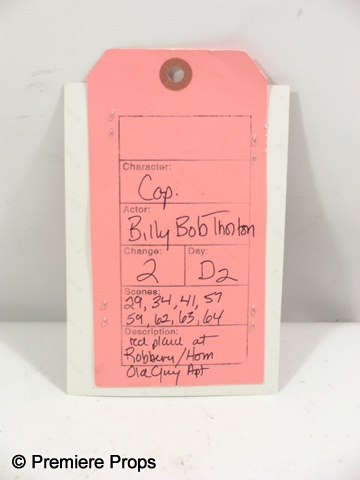 Character:
Cap.
Actor:
Billy Bob Thorton
Change: Day:
2 D2
Scenes:
29, 34, 41, 57
59, 62, 63, 64
Description:
red plaid at
Robbery/Hom
Old Guy Apt
© Premiere Props